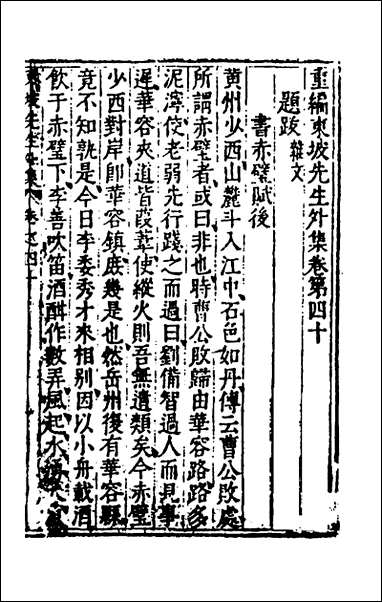 重編東坡先生外集卷第四十
題跋雜文
書赤壁賦後
黃州少西山麓斗入江中石色如丹傳云曹公敗處
所謂赤壁者或曰非也時曹公敗歸由華容路路多
泥濘使老弱先行踐之而過曰劉備智過人而見事
遲華容夾道皆葭葦使縱火則吾無遺類矣今赤壁
少西對岸即華容鎮庶幾是也然岳州復有華容縣
竟不知孰是今日李委秀才來相別因以小舟載酒
飲于赤壁下李善吹笛酒酣作數弄風起水湧大魚